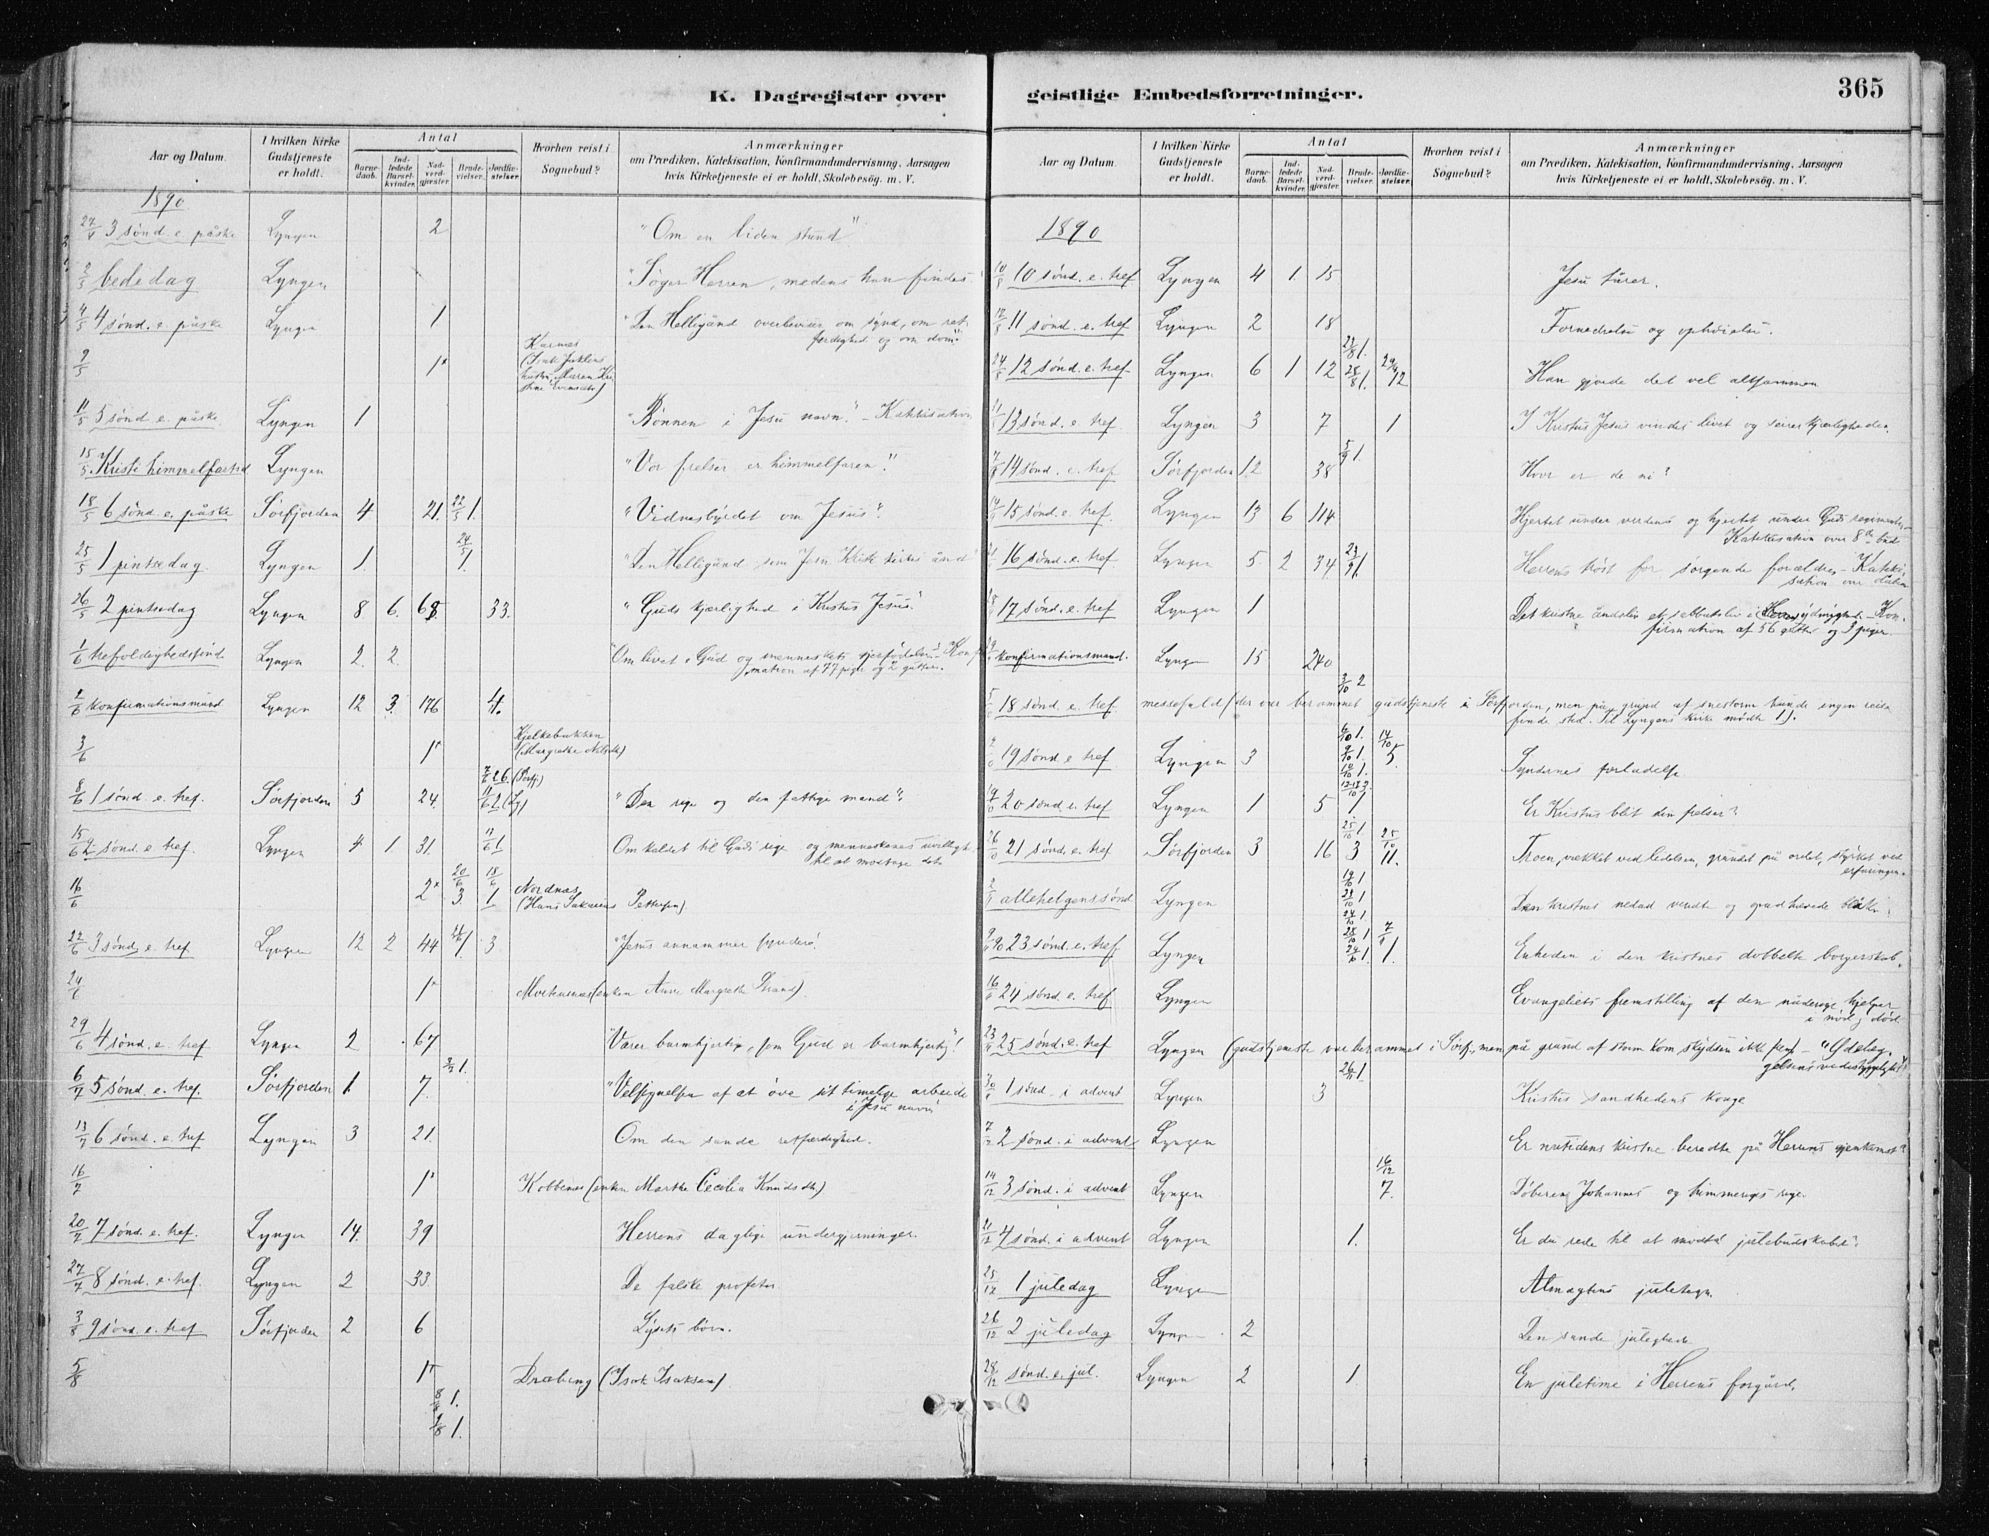 K. Dagregister over
Aar og Datum.
I hvilken Kirke Gudstjeneste er holdt.
Antal
Barnedaab.
Indledede Barselkvinder.
Nadverdgjæster.
Brudevielser.
Jordfæstelser.
Hvorhen reist i Sognebud?
Anmærkninger
om Prædiken, Katekisation, Konfirmandundervisning, Aarsagen
hvis Kirketjeneste ei er holdt, Skolebesøg. m. V.
1890
27/4 3 sønd. e. påske Lyngen 2 "Om en liden stund"
2/5 bededag Lyngen "Søger Herren, medens han findes
4/5 4 sønd. e. påske Lyngen 1 "Den Helligånd overbeviser om synd, om ret-
færdighed og om dom."
9/5 1*
11/5 5 sønd e. påske Lyngen 1 "Bønnen i Jesu navn." - Katekisation
15/5 Kristi himmelfartsd Lyngen "Vor frelser er himmelfaren."
18/5 6 sønd. e. påske Sørfjorden 4 21. 22/5 1. "Vidnesbyrdet om Jesus".
25/5 1 pintsedag Lyngen 1. 24/5 1. "Den Helligånd som Jesu Kristi kirkes ånd
26/5 2 pintsedag Lyngen 8. 6. 68. 33. "Guds kjærlighed i Kristus Jesus."
1/6 Lyngen 2 2 "Om livet i Gud og menneskets gjenfødelse" - Konfir-
mation af 77 piger og 2 gutter.
2/6 konfirmationsmønd Lyngen 12 3. 176 4.
3/6 1* Kjelkebakken
(Margrethe Nilsdtr)
8/6 1 sønd. e. tref. Sørfjorden 5 24. 7/6 26. (Sørfj.) 11/6 2 (Ly) "Den rige og den fattige mand".
15/6 2 sønd. e. tref. Lyngen 4 1 31. 1 Om kaldet til Guds rige og menneskenes uvillighed
til at modtage det
16/6 2* 20/6 3. 18/6 1 Nordnæs
(Hans Sakarias Pettersen)
22/6 3 sønd. e. tref. Lyngen 12 2 44 1. 3 "Jesus annammer syndere".
24/6 1* (enken Anne Margrethe)
29/6 4 sønd. e. tref Lyngen 2 67 "Værer barmhjertige, som Gud er barmhjertig"!
1.
6/7 5 sønd. e. tref. Sørfjorden 1. 7. "Velsignelsen af at øve sit timelige arbeide
i Jesu navn"
13/7 6 sønd. e. tref Lyngen 3 21. Om den sande retfærdighed.
16/7 1* Kobbenæs (enken Marthe Cecilia Knudsdtr)
20/7 7 sønd. e. tref. Lyngen 14. 39 Herrens daglige undergjerninger.
27/7 8 sønd. e. tref. Lyngen 2 33 De falske profeter.
3/8 9 sønd. e. tref Sørfjorden 2 6 Lysets børn.
5/8 1* (Isak Isaksen)
8/8 1.
1.
geistlige Embedsforretninger.
365
Aar og Datum.
I hvilken Kirke Gudstjeneste er holdt.
Antal
Barnedaab.
Indledede Barselkvinder.
Nadverdgjæster.
Brudevielser.
Jordfæstelser.
Hvorhen reist i Sognebud?
Anmærkninger
om Prædiken, Katekisation, Konfirmandundervisning, Aarsagen
hvis Kirketjeneste ei er holdt, Skolebesøg. m. V.
1890
10/8 10 sønd. e. tref Lyngen 4 1 15 Jesu tårer.
11 sønd. e. tref Lyngen 2 18 Fornedrelse og ophøielse.
24/8 12 sønd. e. tref Lyngen 6 1 12 22/8 1. 28/8 1. 12 Han gjorde det vel altsammen
13 sønd. e. tref. Lyngen 3 7 1 I Kristus Jesus vindes livet og seirer kjærligheden.
14 sønd. e. tref Sørfjorden 12 38 5/9 1. Hvor er de ni?
15 sønd. e. tref. Lyngen 13 6 114 Hjertet under verdens og hjertet under Guds regimente -
Katekisation over 8de bud
16 sønd. e. tref Lyngen 5 2 34 1. Herrens trøst for sørgende forældre - Kateki-
sation over dåben
17 sønd. e. tref Lyngen 1 Det kristne åndsliv et sabbatsliv i ydmyghed - Kon-
firmation af 56 gutter og 3 piger.
konfirmationsmønd. Lyngen 15 240
3/10 2
18 sønd. e. tref. messefald (der var berammet gudstjeneste i Sørfjorden, men på grund af snestorm kunde ingen reise
finde sted. Til Lyngens kirke mødte 1).
19 sønd. e tref Lyngen 3 1. 1. 1. 14/10 5. Syndernes forladelse
20 sønd. e. tref Lyngen 1 5 1 Er Kristus blit din frelser?
26/10 21 sønd. e. tref Sørfjorden 3 16 25/10 1 3 25/10 11. Troen, vækket ved lidelsen, grundet på ordet, styrket ved
erfaringen.
allehelgenssønd Lyngen 1 1 1
23 sønd. e. tref. Lyngen 1 1. 1. Enheden i den kristnes dobbelte borgerskab.
16/11 24 sønd. e. tref Lyngen Evangeliets fremstilling af den nåderige hjelper
i nød og død
23/11 25 sønd. e. tref Lyngen (gudstjeneste var berammet i Sørfj., men på grund af storm kom skydsen ikke frem) - "Ødelæg-
gelsens vederstyggelighed".
30/11 1 sønd. i advent Lyngen 3 26/11 1 Kristus sandhedens konge
7/12 2 sønd. i advent Lyngen Er nutidens kristne beredte på Herrens gjenkomst?
14/12 3 sønd. i advent Lyngen 16/12 7. Døberen Johannes og himmeriges rige.
21/12 4 sønd. i advent Lyngen 1. Er du rede til at modtå julebudskabet?
25/12 1 juledag Lyngen Almagtens juletegn.
26/12 2 juledag Lyngen 2 Den sande juleglæde
28/12 sønd. e. jul. Lyngen 2 1. En juletime i Herrens forgård.